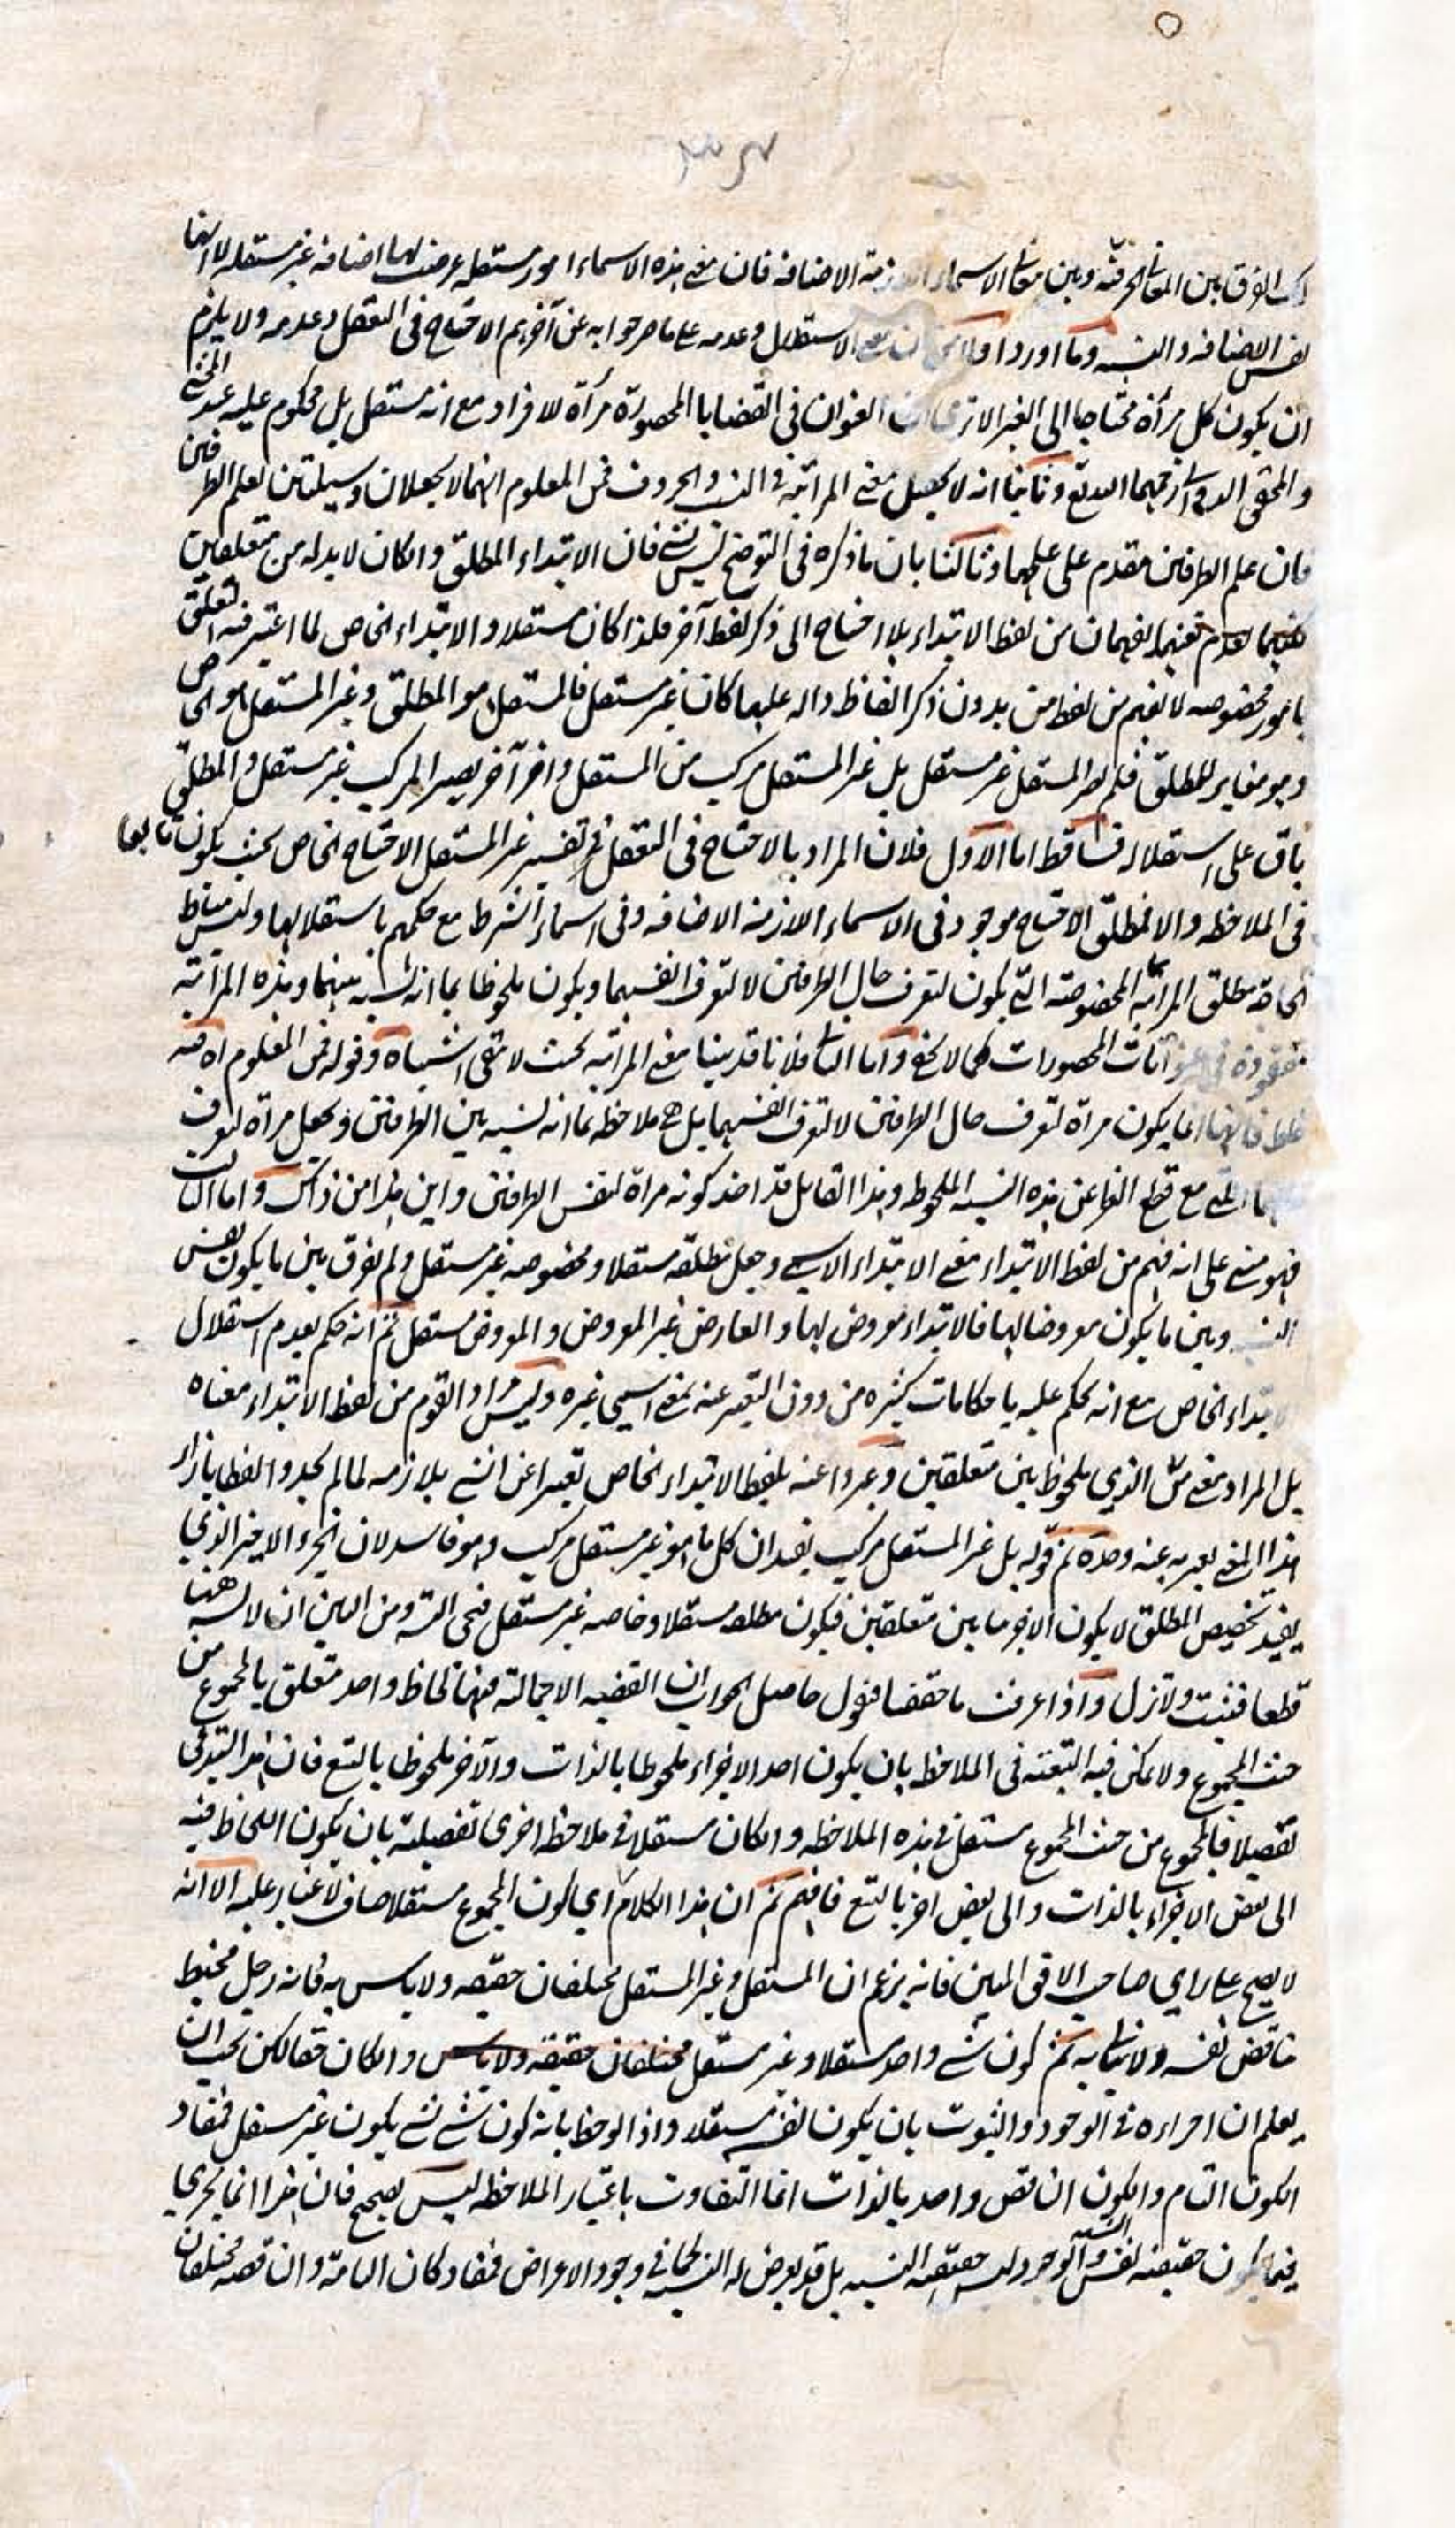 الفرق بين المعاني الحرفية وبين معاني الاسماء اللازمة الاضافة فان معنى هذه الاسماء امور مستقلة عرضت لها اضافة غير مستقلة لا انها
نفس الاضافة والنسبة وما اورد اولا الاستقلال وعدمه على ما صرحوا به عن آخرهم الاحتياج فى التعقل وعدمه ولا يلزم
ان يكون كل مرأة محتاجا الى الغير الا ترى ان العنوان فى القضايا المحصورة مرآة للافراد مع انه مستقل بل محكوم عليه عند المحشي
والمحقق الدواني رحمهما الله تعالى وثانيا انه لا يحصل معنى المراتية فى النسب والحروف فمن المعلوم انهما لا يجعلان وسيلتين لعلم الطرفين
فان علم الطرفين مقدم على علمهما وثالثا بان ما ذكره فى التوضيح ليس بشئ فان الابتداء المطلق وان كان لا بد له من متعلقين
لكنهما لعدم تعينهما يفهمان من لفظ الابتداء بلا احتياج الى ذكر لفظ آخر فلذا كان مستقلا والابتداء الخاص لما اعتبر فيه التعلق
بامور مخصوصه لا يفهم من لفظ من بدون ذكر الفاظ داله عليها كان غير مستقل فالمستقل هو المطلق وغير المستقل هو الخاص
وهو مغاير للمطلق فلم يصر المستقل غير مستقل بل غير المستقل مركب من المستقل وامر آخر يصير المركب غير مستقل والمطلق
باق على استقلاله فساقط اما الاول فلان المراد بالاحتياج فى التعقل فى تفسير غير المستقل الاحتياج الخاص بحيث يكون تابعا
فى الملاحظه والا فمطلق الاحتياج موجود فى الاسماء اللازمة الاضافه وفى اسماء الشرط مع حكمهم باستقلالها وليس مناط
الحاجة مطلق المراتية المخصوصة التى يكون لتعرف حال الطرفين لا لتعرف انفسهما ويكون ملحوظا بما انه نسبة بينهما وهذه المراتية
مفقودة فى عنوانات المحصورات كما لا يخفى واما الثانى فلانا قد بينا معنى المراتية بحيث لا يبقى اشتباه وقوله فمن المعلوم اه فيه
غلط فانهما انما يكون مرآة لتعرف حال الطرفين لا لتعرف انفسهما بل هى ملاحظه بما انه نسبة بين الطرفين ويجعل مرآة لتعرف
مع قطع النظر عن هذه النسبه الملحوظه وهذا القائل قد اخذ كونه مرآة لنفس الطرفين واين هذا من ذاك واما الثالث
فهو مبنى على انه فهم من لفظ الابتداء معنى الابتداء الاسمى وجعل مطلقه مستقلا ومخصوصه غير مستقل ولم يفرق بين ما يكون نفس
النسبة وبين ما يكون معروضا لها فالابتداء معروض لها والعارض غير المعروض والمعروض مستقل ثم انه حكم بعدم استقلال
الابتداء الخاص مع انه يحكم عليه باحكامات كثيره من دون التعبير عنه بمعنى اسمى غيره وليس مراد القوم من لفظ الابتداء معناه
بل المراد معنى من الذى ملحوظ بين متعلقين وعبروا عنه بلفظ الابتداء الخاص تعبيرا عن الشئ بلازمه لما لم يجدوا لفظا بازاء
هذا المعنى يعبر به عنه وحده ثم قوله بل غير المستقل مركب يفيد ان كل ما هو غير مستقل مركب وهو فاسد لان الجزء الاخير الذى
يفيد تخصيص المطلق لا يكون الا امر ما بين متعلقين فيكون مطلقه مستقلا وخاصه غير مستقل ومن البين ان لا نسبة هنا
قطعا فتثبت ولا تزل واذا عرفت ما حققنا فنقول حاصل الجواب ان القضيه الاجمالية فيها لحاظ واحد متعلق بالمجموع من
حيث المجموع ولا يمكن فيه التبعية فى الملاحظه بان يكون احد الاجزاء ملحوظا بالذات والآخر ملحوظا بالتبع فان هذا
تفصيلا فالمجموع من حيث المجموع مستقل فى هذه الملاحظه وان كان مستقلا فى ملاحظة اخرى تفصيلية بان يكون اللحاظ فيه
الى بعض الاجزاء بالذات والى بعض اخر بالتبع فافهم ثم ان هذا الكلام اى كون المجموع مستقلا صاف لا غبار عليه الا انه
لا يصح على راى صاحب الافق المبين فانه يزعم ان المستقل وغير المستقل مختلفان حقيقه ولا باس به فانه رجل مخبط
مناقض نفسه ثم كون شئ واحد مستقلا وغير مستقل مختلفان حقيقة ولا باس وان كان حقا لكن يجب ان
يعلم ان اجراءه فى الوجود والثبوت بان يكون لنفسه مستقلا واذا لوحظ بانه كون شئ شئ يكون غير مستقل فمفاد
الكون التام والكون الناقص واحد بالذات انما التفاوت باعتبار الملاحظه ليس بصحيح فان هذا انما يجرى
فيما يكون حقيقته نفس النسبة والوجود ليس حقيقته النسبه بل قد يعرض له النسبة كما فى وجود الاعراض فمفاد كان التامة والناقصه مختلفان